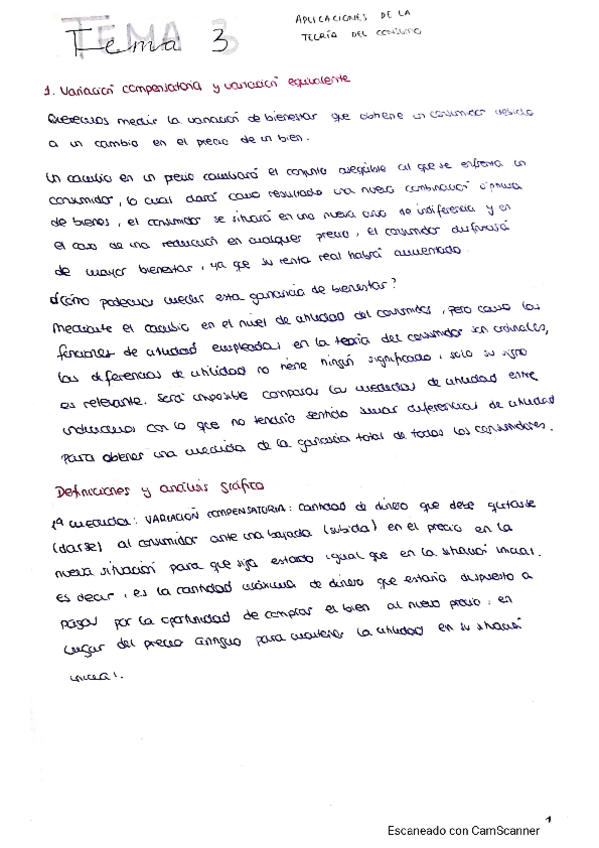 TEMA 3
Tema 3
APLICACIONES DE LA
TEORÍA DEL CONSUMO
1. Variación compensatoria y variación equivalente
Queremos medir la variación de bienestar que obtiene un consumidor debido
a un cambio en el precio de un bien.
Un cambio en un precio cambiará el conjunto asequible al que se enfrenta un
consumidor, lo cual dará como resultado una nueva combinación óptima
de bienes, el consumidor se situará en una nueva curva de indiferencia y en
el caso de una reducción en cualquier precio, el consumidor disfrutará
de mayor bienestar, ya que su renta real habrá aumentado.
¿Cómo podemos medir esta ganancia de bienestar?
Mediante el cambio en el nivel de utilidad del consumidor, pero como las
funciones de utilidad empleadas en la teoría del consumidor son ordinales,
las diferencias de utilidad no tiene ningún significado, solo su signo
es relevante. Será imposible comparar las medidas de utilidad entre
individuos con lo que no tendría sentido sumar diferencias de utilidad
para obtener una medida de la ganancia total de todos los consumidores.
Definiciones y análisis gráfico
1ª medida: VARIACIÓN COMPENSATORIA: cantidad de dinero que debe quitarse
(darse) al consumidor ante una bajada (subida) en el precio en la
nueva situación para que siga estando igual que en la situación inicial.
es decir, es la cantidad máxima de dinero que estaría dispuesto a
pagar por la oportunidad de comprar el bien al nuevo precio, en
lugar del precio antiguo para mantener la utilidad en su situación
inicial.
1
Escaneado con CamScanner